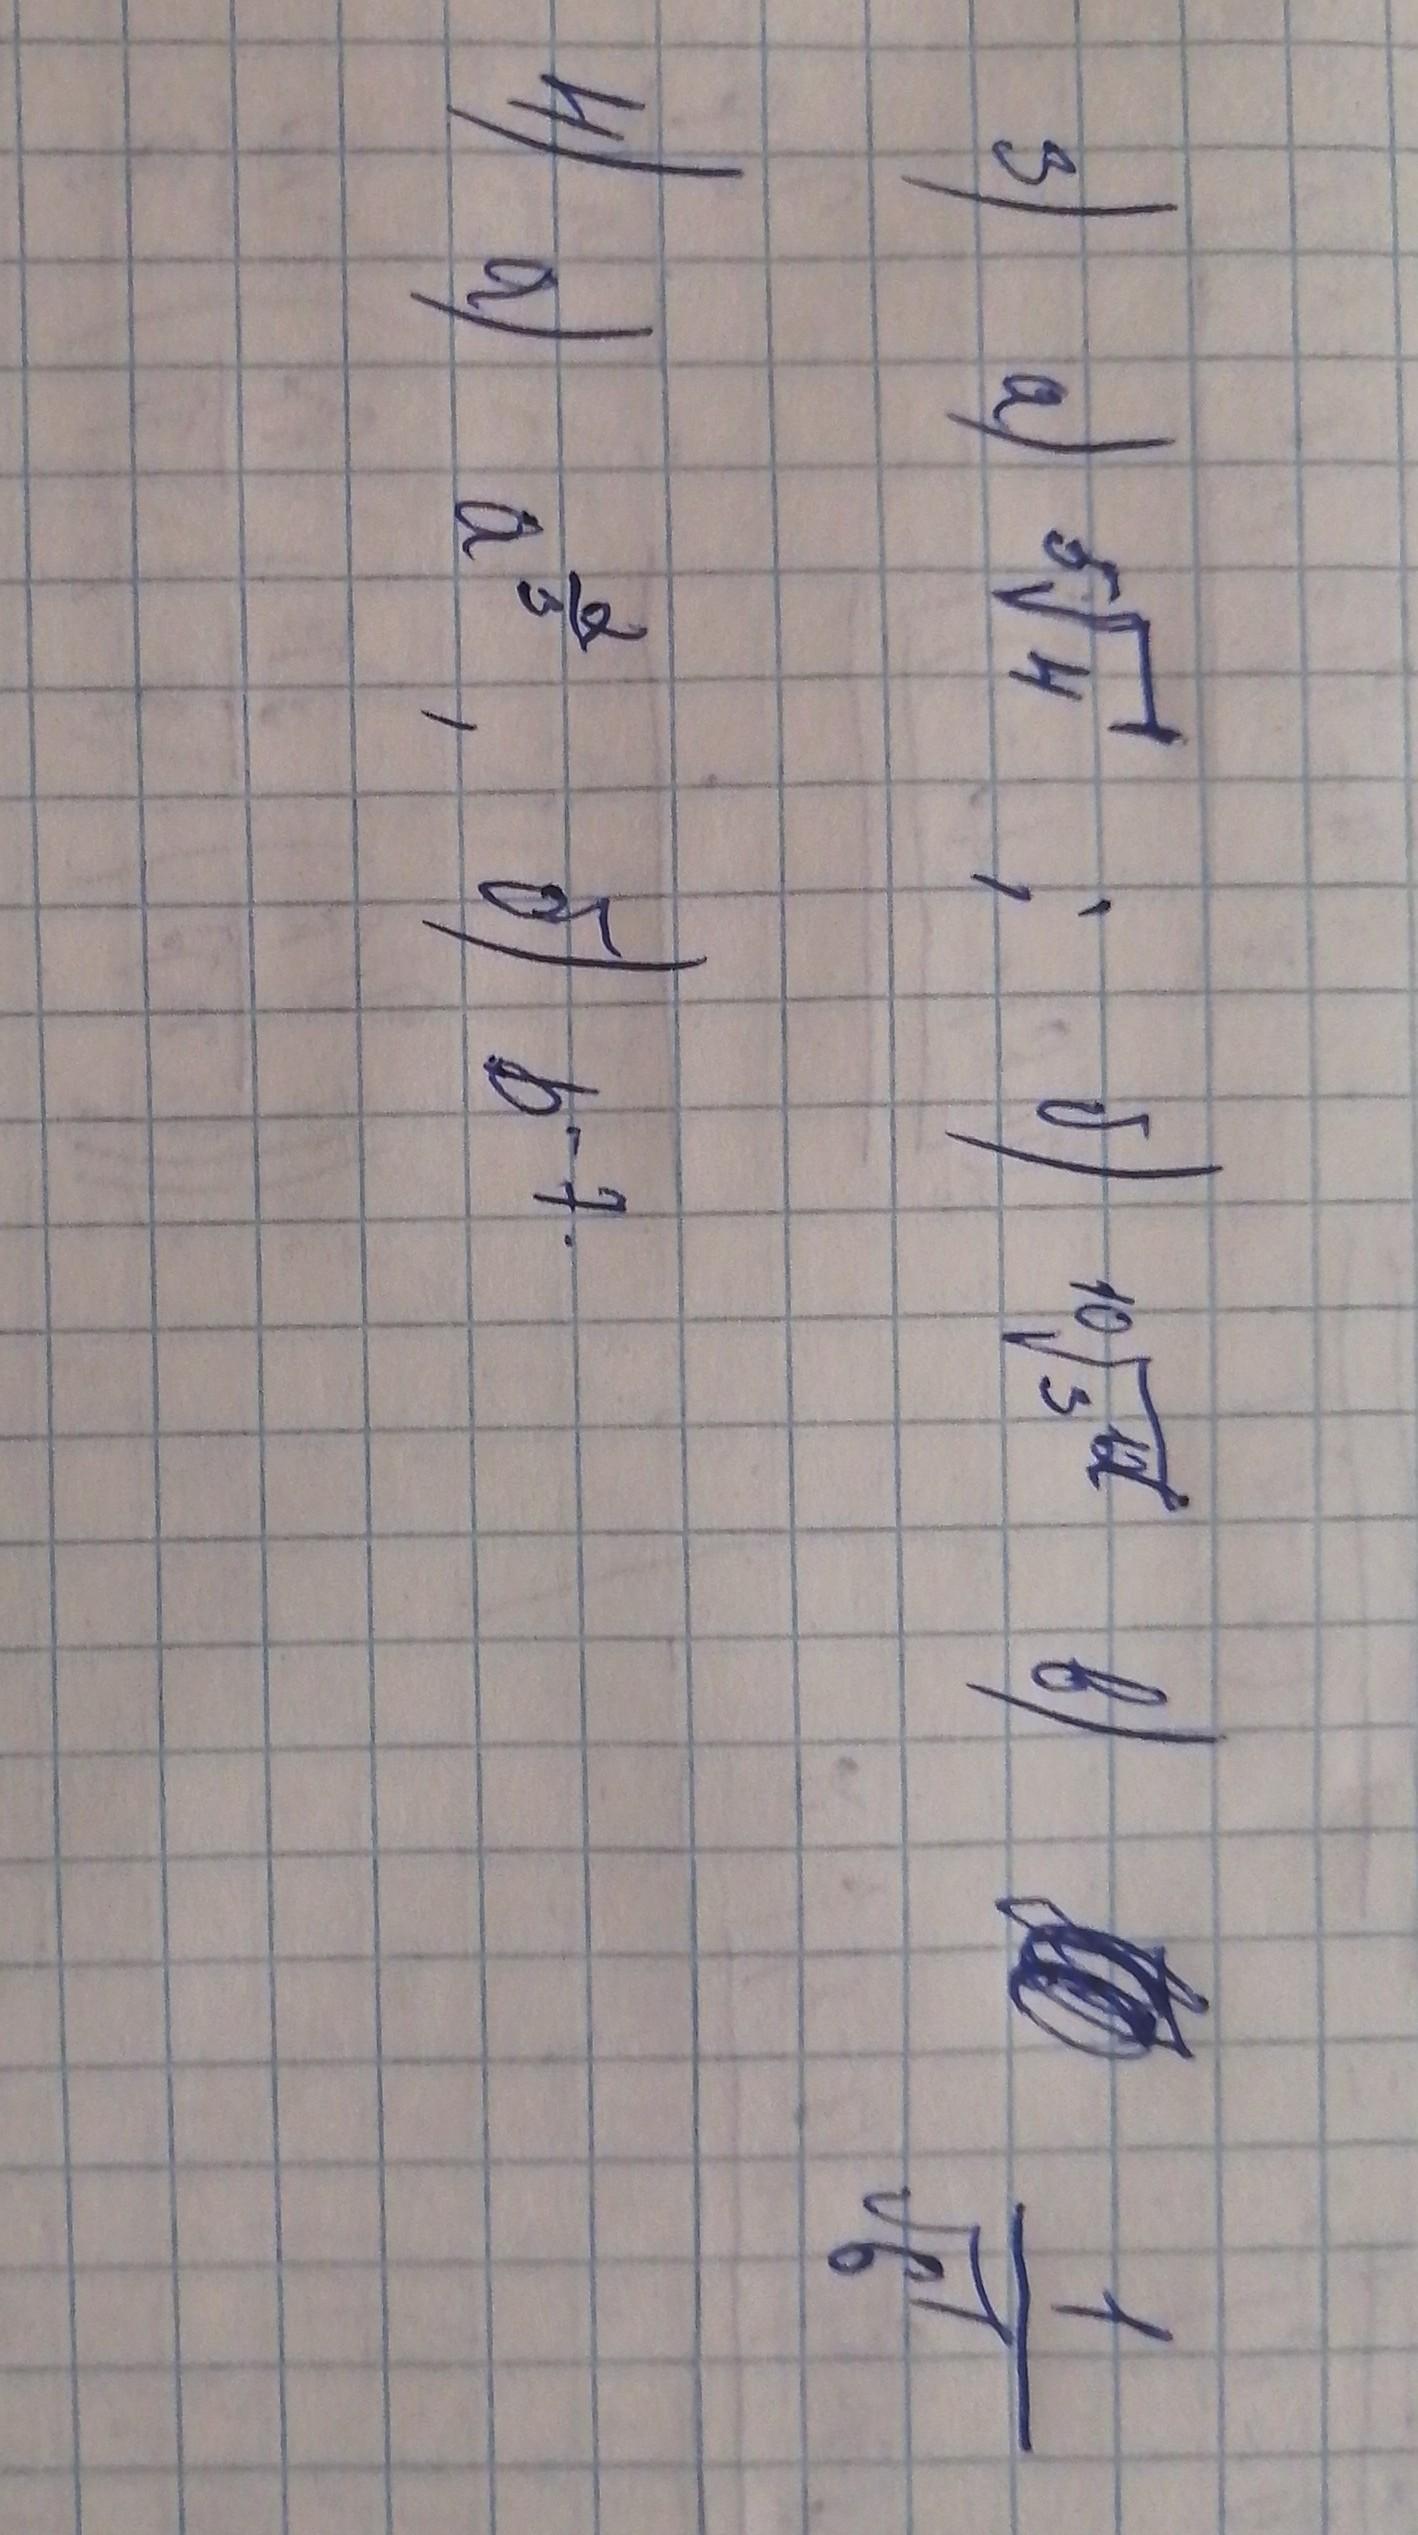 3) а) ⁵√4 ; б) ¹⁰√3¹² в) 1/√6¹
4) а) a^(2/3) , б) b⁻⁷.